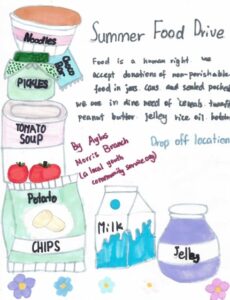 Summer Food Drive
Food is a human right we
accept donations of non-perishable
food in jars, cans and sealed packed
we are in dire need of cereals,
peanut butter jelley rice oil
Noodles
PICKLES
TOMATO
SOUP
By
Morris Branch
(a local youth
community service org)
Drop off location
Potato
CHIPS
Milk
Jelley